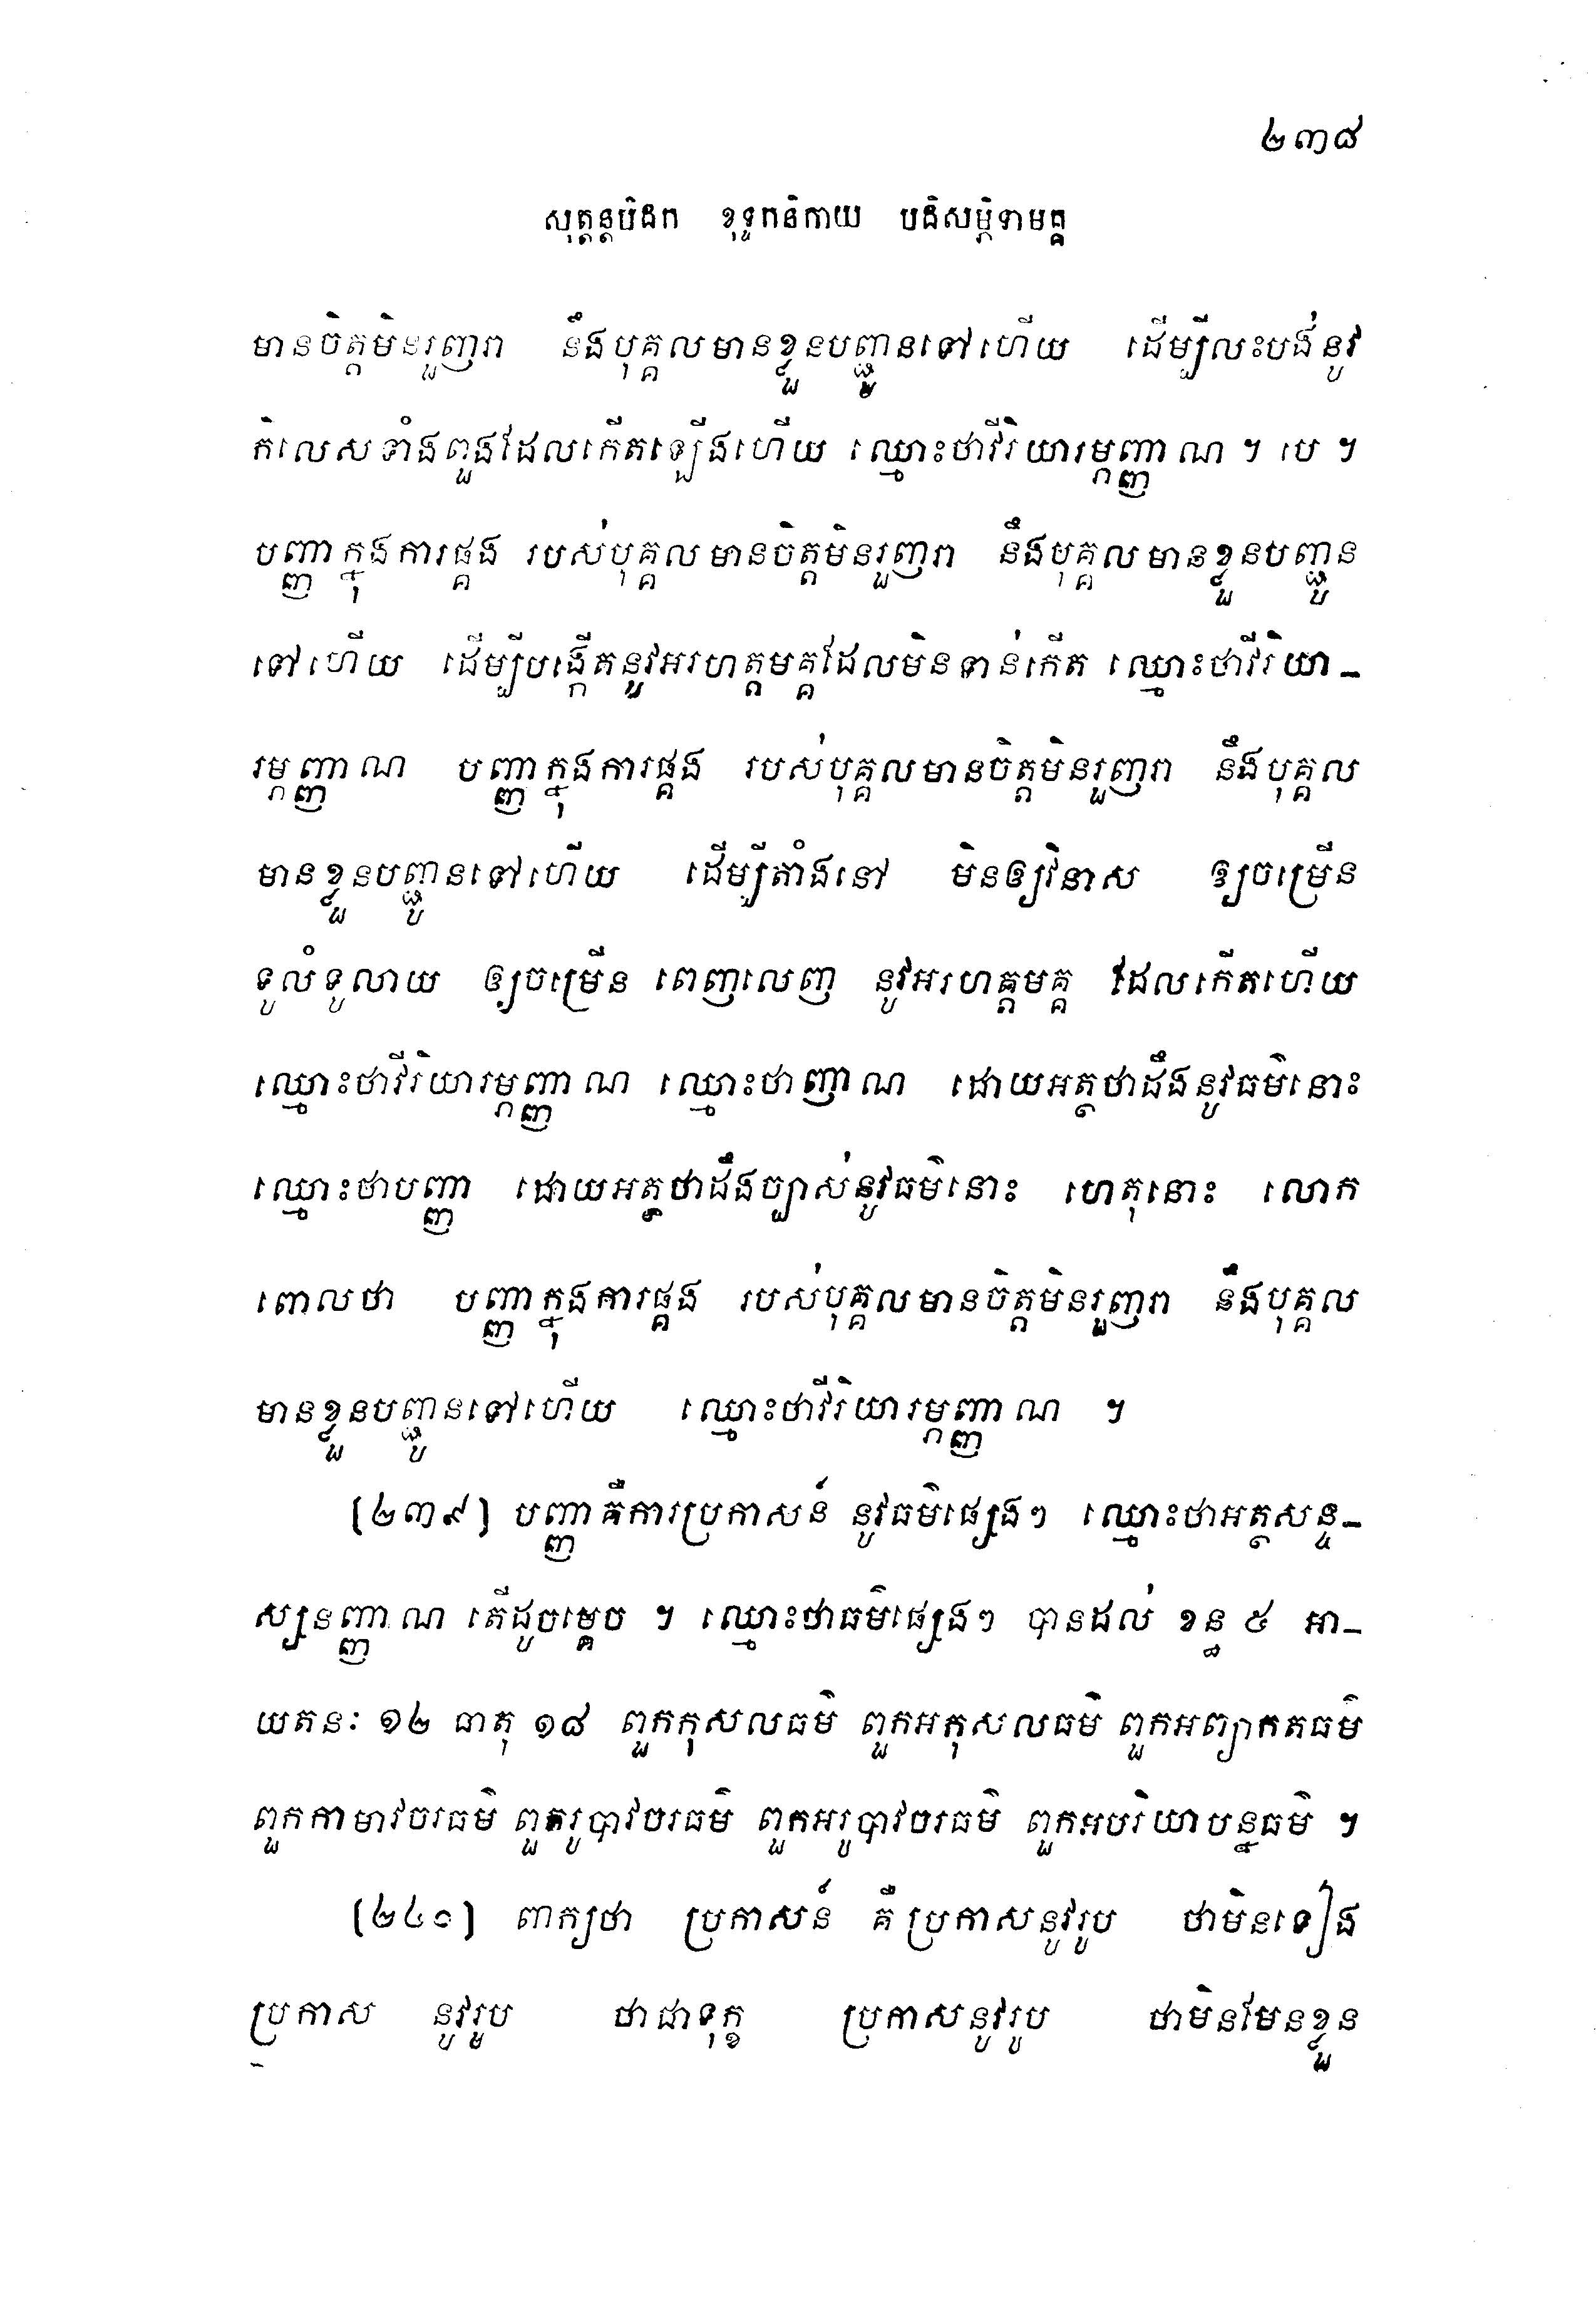 ២៣៨
សុត្តន្តបិដក ខុទ្ទកនិកាយ បដិសម្ភិទាមគ្គ
មានចិត្តមិនរួញរា នឹងបុគ្គលមានខ្លួនបញ្ជូនទៅហើយ ដើម្បីលះបង់នូវ
កិលេសទាំងពួងដែលកើតឡើងហើយ ឈ្មោះថាវីរិយារម្ភញ្ញាណ ។ បេ ។
បញ្ញាក្នុងការផ្គង របស់បុគ្គលមានចិត្តមិនរួញរា នឹងបុគ្គលមានខ្លួនបញ្ជូន
ទៅហើយ ដើម្បីបង្កើតនូវអរហត្តមគ្គដែលមិនទាន់កើត ឈ្មោះថាវីរិយា-
រម្ភញ្ញាណ បញ្ញាក្នុងការផ្គង របស់បុគ្គលមានចិត្តមិនរួញរា នឹងបុគ្គល
មានខ្លួនបញ្ជូនទៅហើយ ដើម្បីតាំងនៅ មិនឲ្យវិនាស ឲ្យចម្រើន
ទូលំទូលាយ ឲ្យចម្រើន ពេញលេញ នូវអរហត្តមគ្គ ដែលកើតហើយ
ឈ្មោះថាវីរិយារម្ភញ្ញាណ ឈ្មោះថាញាណ ដោយអត្ថថាដឹងនូវធម៌នោះ
ឈ្មោះថាបញ្ញា ដោយអត្ថថាដឹងច្បាស់នូវធម៌នោះ ហេតុនោះ លោក
ពោលថា បញ្ញាក្នុងការផ្គង របស់បុគ្គលមានចិត្តមិនរួញរា នឹងបុគ្គល
មានខ្លួនបញ្ជូនទៅហើយ ឈ្មោះថាវីរិយារម្ភញ្ញាណ ។
(២៣៩) បញ្ញាគឺការប្រកាសន៍ នូវធម៌ផ្សេងៗ ឈ្មោះថាអត្ថសន្ទ-
ស្សនញ្ញាណ តើដូចម្តេច ។ ឈ្មោះថាធម៌ផ្សេងៗ បានដល់ ខន្ធ ៥ អា-
យតនៈ ១២ ធាតុ ១៨ ពួកកុសលធម៌ ពួកអកុសលធម៌ ពួកអព្យាកតធម៌
ពួកកាមាវចរធម៌ ពួករូបាវចរធម៌ ពួកអរូបាវចរធម៌ ពួកអបរិយាបន្នធម៌ ។
(២៤០) ពាក្យថា ប្រកាសន៍ គឺប្រកាសនូវរូប ថាមិនទៀង
ប្រកាស នូវរូប ថាជាទុក្ខ ប្រកាសនូវរូប ថាមិនមែនខ្លួន